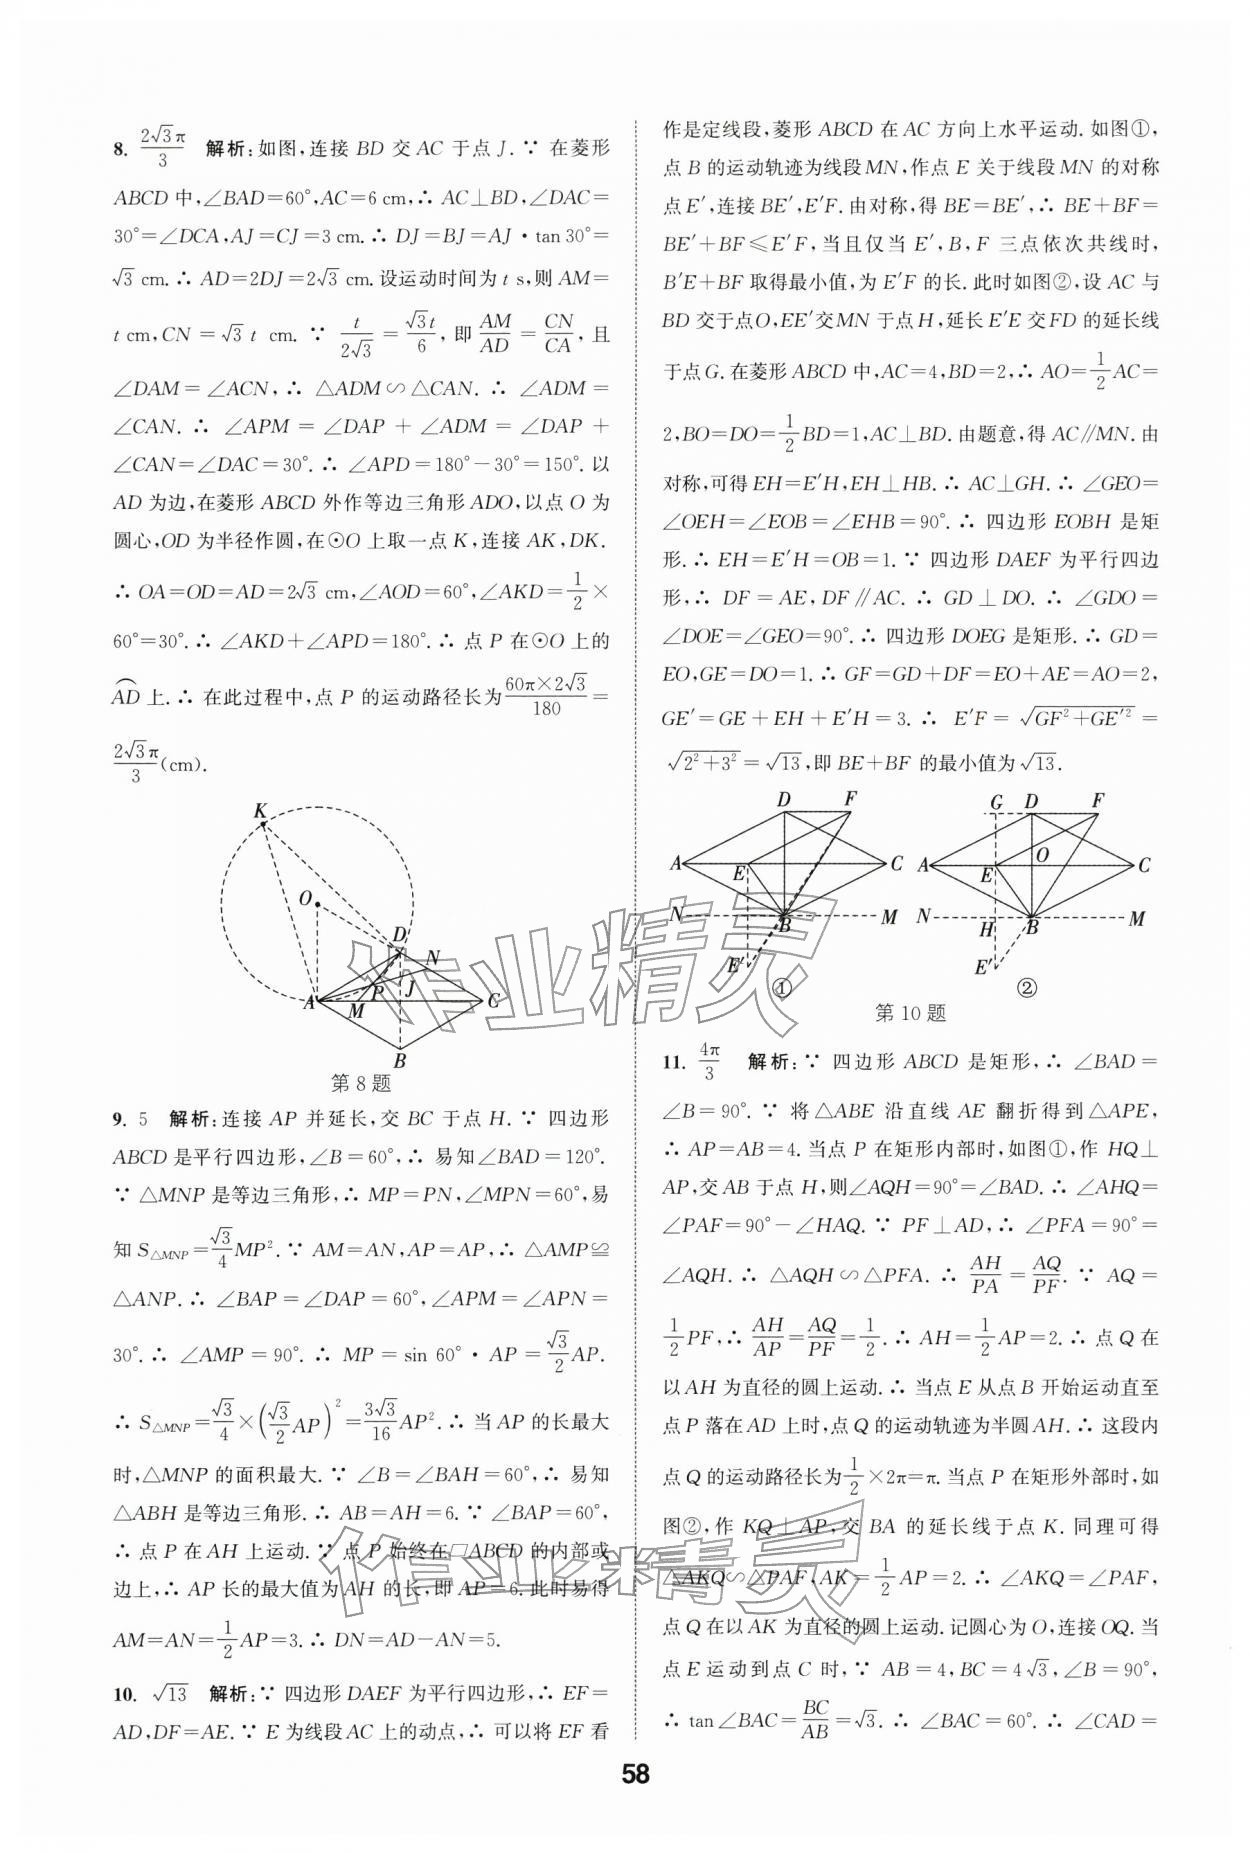 8. 2√3π/3 解析:如图,连接 BD 交 AC 于点 J.∵ 在菱形
ABCD 中,∠BAD=60°,AC=6 cm,∴ AC⊥BD,∠DAC=
30°=∠DCA,AJ=CJ=3 cm.∴ DJ=BJ=AJ·tan 30°=
√3 cm.∴ AD=2DJ=2√3 cm.设运动时间为 t s,则 AM=
t cm,CN=√3 t cm.∵ t/2√3=√3t/6,即 AM/AD=CN/CA,且
∠DAM=∠ACN,∴ △ADM∽△CAN.∴ ∠ADM=
∠CAN.∴ ∠APM=∠DAP+∠ADM=∠DAP+
∠CAN=∠DAC=30°.∴ ∠APD=180°-30°=150°.以
AD 为边,在菱形 ABCD 外作等边三角形 ADO,以点 O 为
圆心,OD 为半径作圆,在⊙O 上取一点 K,连接 AK,DK.
∴ OA=OD=AD=2√3 cm,∠AOD=60°,∠AKD=1/2×
60°=30°.∴ ∠AKD+∠APD=180°.∴ 点 P 在⊙O 上的
⌒AD 上.∴ 在此过程中,点 P 的运动路径长为 60π×2√3/180=
2√3π/3(cm).
K
O
D
N
P
J
A
M
C
B
第 8 题
9. 5 解析:连接 AP 并延长,交 BC 于点 H.∵ 四边形
ABCD 是平行四边形,∠B=60°,∴ 易知∠BAD=120°.
∵ △MNP 是等边三角形,∴ MP=PN,∠MPN=60°,易
知 S△MNP=√3/4 MP².∵ AM=AN,AP=AP,∴ △AMP≌
△ANP.∴ ∠BAP=∠DAP=60°,∠APM=∠APN=
30°.∴ ∠AMP=90°.∴ MP=sin 60°·AP=√3/2 AP.
∴ S△MNP=√3/4×(√3/2 AP)²=3√3/16 AP².∴ 当 AP 的长最大
时,△MNP 的面积最大.∵ ∠B=∠BAH=60°,∴ 易知
△ABH 是等边三角形.∴ AB=AH=6.∵ ∠BAP=60°,
∴ 点 P 在 AH 上运动.∵ 点 P 始终在▱ABCD 的内部或
边上,∴ AP 长的最大值为 AH 的长,即 AP=6.此时易得
AM=AN=1/2 AP=3.∴ DN=AD-AN=5.
10. √13 解析:∵ 四边形 DAEF 为平行四边形,∴ EF=
AD,DF=AE.∵ E 为线段 AC 上的动点,∴ 可以将 EF 看
作是定线段,菱形 ABCD 在 AC 方向上水平运动.如图①,
点 B 的运动轨迹为线段 MN,作点 E 关于线段 MN 的对称
点 E′,连接 BE′,E′F.由对称,得 BE=BE′,∴ BE+BF=
BE′+BF≤E′F,当且仅当 E′,B,F 三点依次共线时,
B′E+BF 取得最小值,为 E′F 的长.此时如图②,设 AC 与
BD 交于点O,EE′交MN 于点 H,延长E′E 交FD 的延长线
于点 G.在菱形 ABCD 中,AC=4,BD=2,∴ AO=1/2 AC=
2,BO=DO=1/2 BD=1,AC⊥BD.由题意,得 AC∥MN.由
对称,可得 EH=E′H,EH⊥HB.∴ AC⊥GH.∴ ∠GEO=
∠OEH=∠EOB=∠EHB=90°.∴ 四边形 EOBH 是矩
形.∴ EH=E′H=OB=1.∵ 四边形 DAEF 为平行四边
形,∴ DF=AE,DF∥AC.∴ GD⊥DO.∴ ∠GDO=
∠DOE=∠GEO=90°.∴ 四边形 DOEG 是矩形.∴ GD=
EO,GE=DO=1.∴ GF=GD+DF=EO+AE=AO=2,
GE′=GE+EH+E′H=3.∴ E′F=√(GF²+GE′²)=
√(2²+3²)=√13,即 BE+BF 的最小值为√13.
D F
A E C
N B M
E′
①
G D F
A E O C
N H B M
E′
②
第 10 题
11. 4π/3 解析:∵ 四边形 ABCD 是矩形,∴ ∠BAD=
∠B=90°.∵ 将△ABE 沿直线 AE 翻折得到△APE,
∴ AP=AB=4.当点 P 在矩形内部时,如图①,作 HQ⊥
AP,交 AB 于点 H,则∠AQH=90°=∠BAD.∴ ∠AHQ=
∠PAF=90°-∠HAQ.∵ PF⊥AD,∴ ∠PFA=90°=
∠AQH.∴ △AQH∽△PFA.∴ AH/PA=AQ/PF.∵ AQ=
1/2 PF,∴ AH/AP=AQ/PF=1/2.∴ AH=1/2 AP=2.∴ 点 Q 在
以 AH 为直径的圆上运动.∴ 当点 E 从点 B 开始运动直至
点 P 落在 AD 上时,点 Q 的运动轨迹为半圆 AH.∴ 这段内
点 Q 的运动路径长为1/2×2π=π.当点 P 在矩形外部时,如
图②,作 KQ⊥AP,交 BA 的延长线于点 K.同理可得
△AKQ∽△PAF,AK=1/2 AP=2.∴ ∠AKQ=∠PAF,
点 Q 在以 AK 为直径的圆上运动.记圆心为 O,连接 OQ.当
点 E 运动到点 C 时,∵ AB=4,BC=4√3,∠B=90°,
∴ tan∠BAC=BC/AB=√3.∴ ∠BAC=60°.∴ ∠CAD=
58
作业精灵
作业精灵